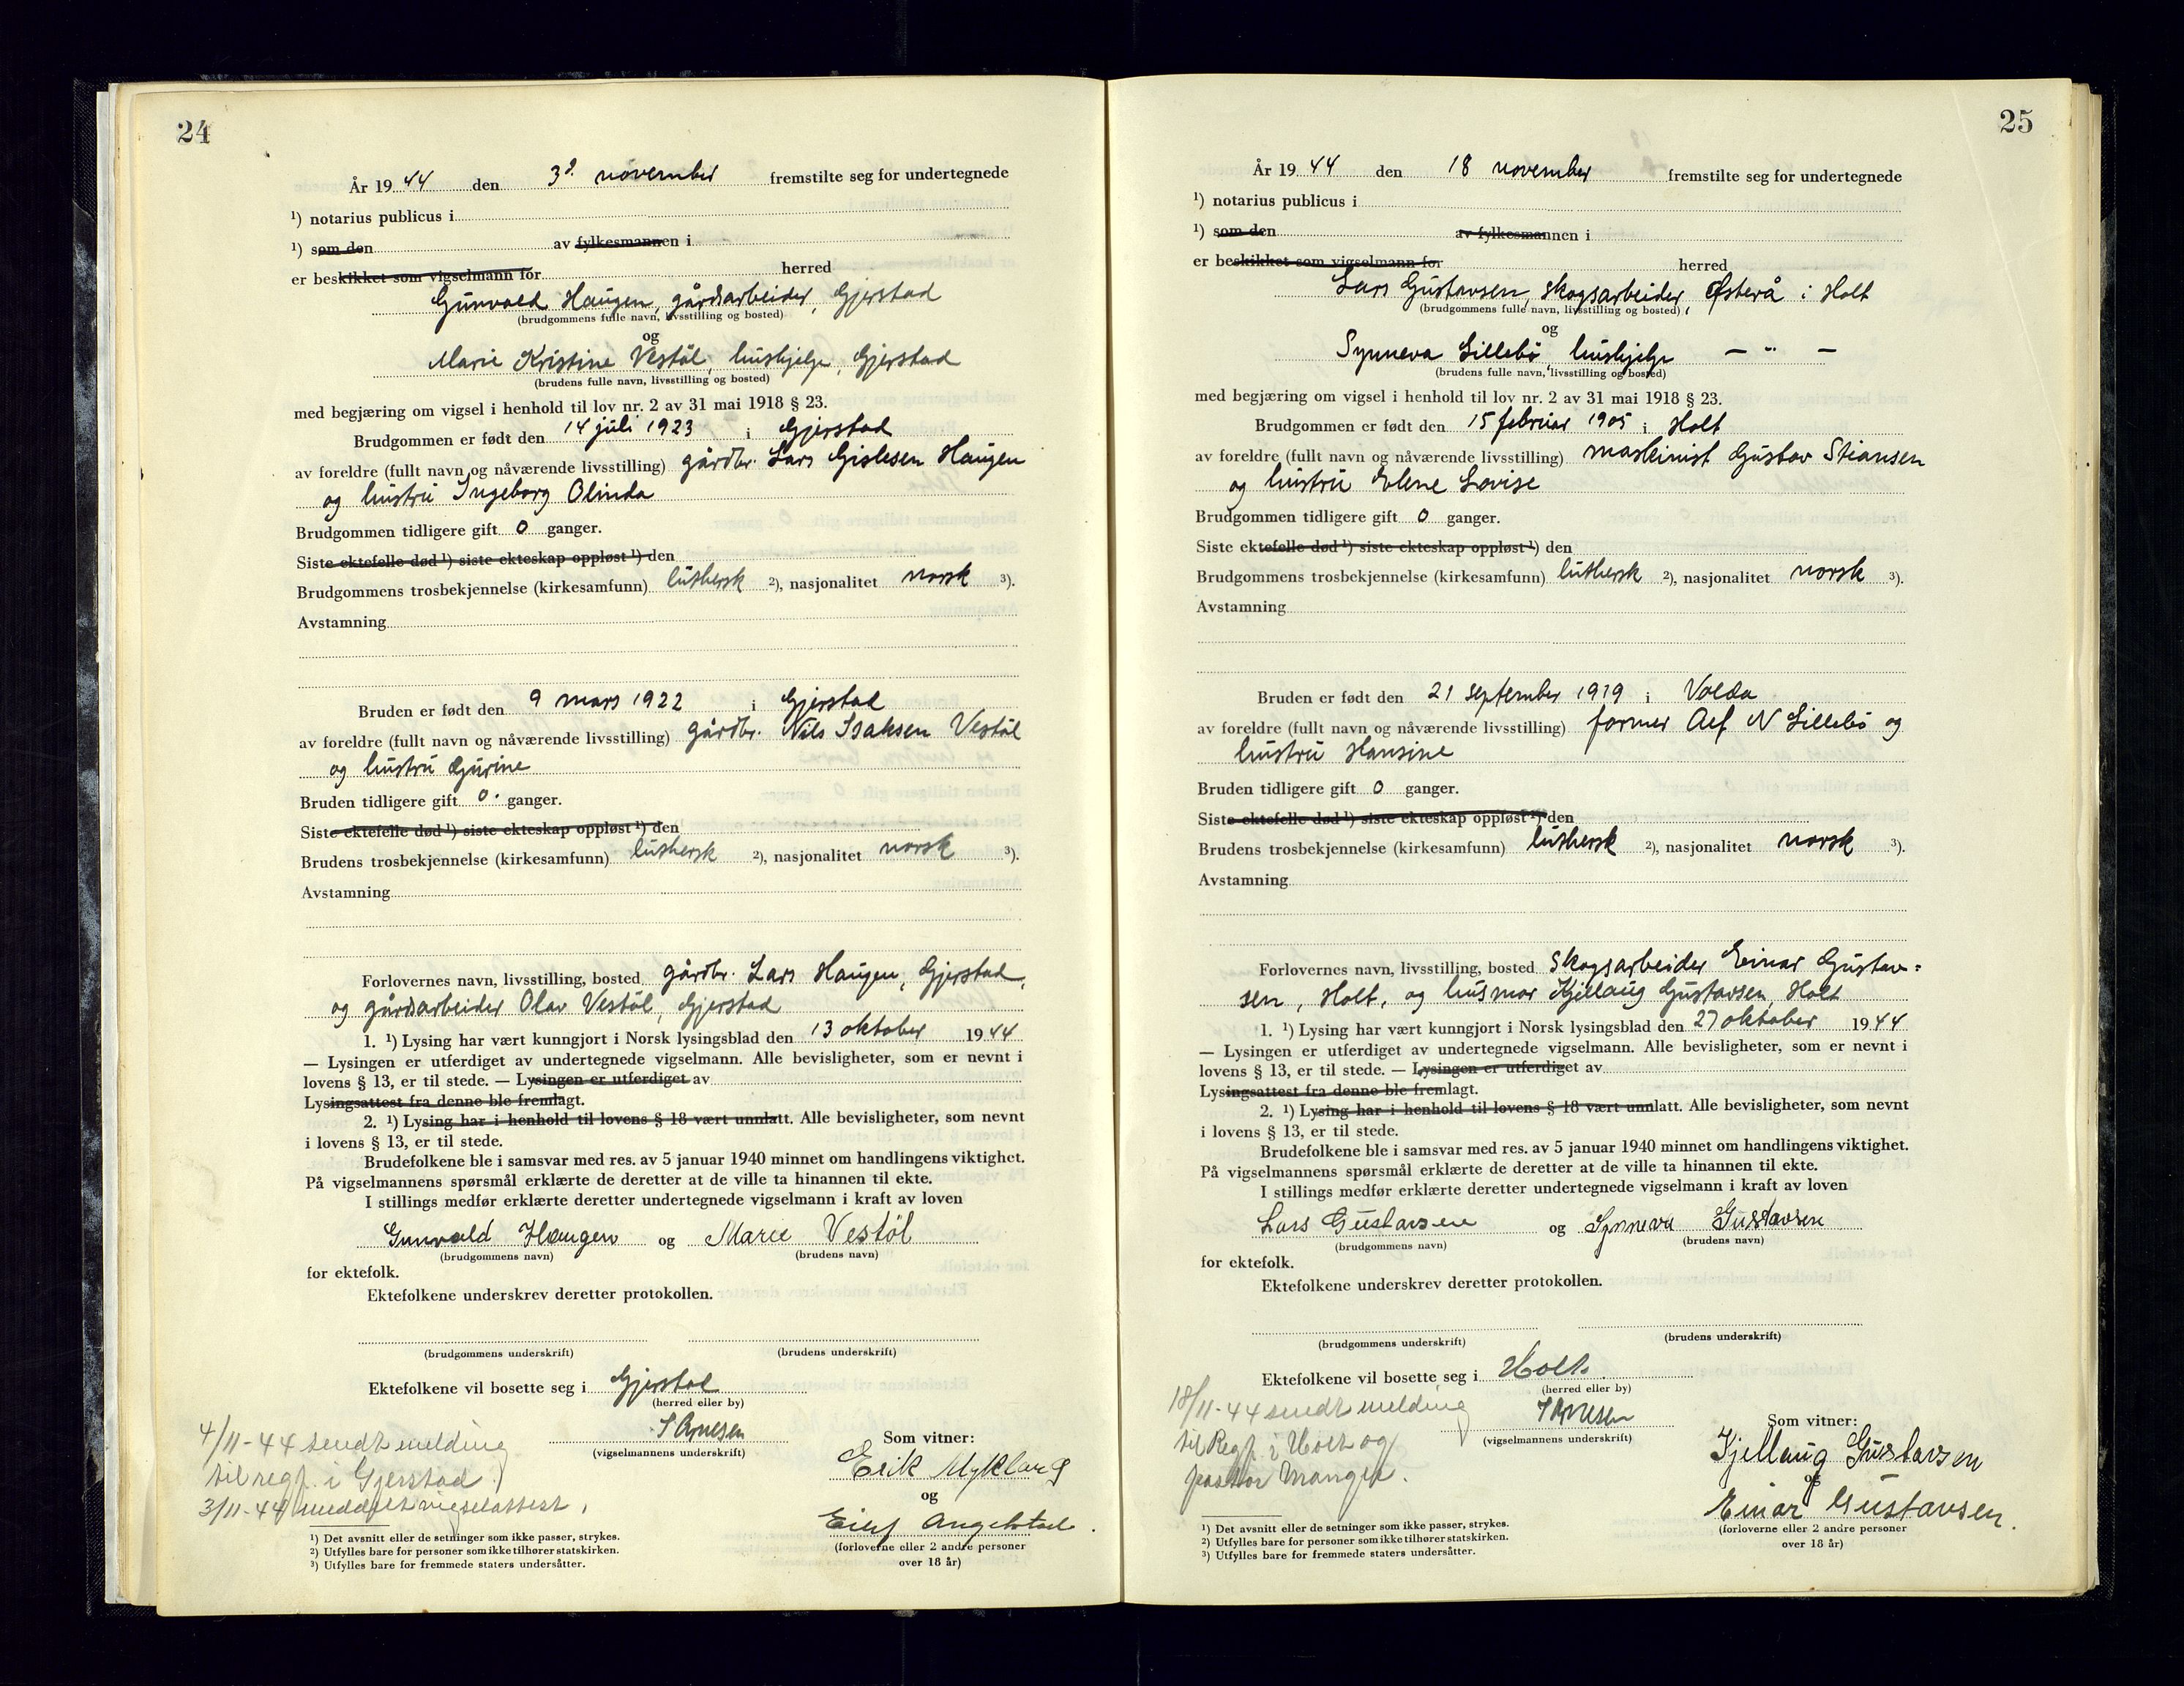 24
År 19 44 den 3d november fremstilte seg for undertegnede
¹) notarius publicus i
¹) som den av fylkesmannen i
er beskikket som vigselmann for herred
Gunvald Haugen, gårdsarbeider, Gjerstad
(brudgommens fulle navn, livsstilling og bosted)
og
Marie Kristine Vestöl, hushjelp, Gjerstad
(brudens fulle navn, livsstilling og bosted)
med begjæring om vigsel i henhold til lov nr. 2 av 31 mai 1918 § 23.
Brudgommen er født den 14 juli 1923 i Gjerstad
av foreldre (fullt navn og nåværende livsstilling) gårdbr. Lars Gislesen Haugen
og hustru Ingeborg Olinda
Brudgommen tidligere gift 0 ganger.
Siste ektefelle død ¹) siste ekteskap oppløst ¹) den
Brudgommens trosbekjennelse (kirkesamfunn) luthersk ²), nasjonalitet norsk ³).
Avstamning
Bruden er født den 9 mars 1922 i Gjerstad
av foreldre (fullt navn og nåværende livsstilling) gårdbr. Nils Isaksen Vestöl
og hustru Gurine
Bruden tidligere gift 0 ganger.
Siste ektefelle død ¹) siste ekteskap oppløst ¹) den
Brudens trosbekjennelse (kirkesamfunn) luthersk ²), nasjonalitet norsk ³).
Avstamning
Forlovernes navn, livsstilling, bosted gårdbr. Lars Haugen, Gjerstad,
og gårdsarbeider Olav Vestöl, Gjerstad
1. ¹) Lysing har vært kunngjort i Norsk lysingsblad den 13 oktober 1944
— Lysingen er utferdiget av undertegnede vigselmann. Alle bevisligheter, som er nevnt i
lovens § 13, er til stede. — Lysingen er utferdiget av
Lysingsattest fra denne ble fremlagt.
2. ¹) Lysing har i henhold til lovens § 18 vært unnlatt. Alle bevisligheter, som nevnt
i lovens § 13, er til stede.
Brudefolkene ble i samsvar med res. av 5 januar 1940 minnet om handlingens viktighet.
På vigselmannens spørsmål erklærte de deretter at de ville ta hinannen til ekte.
I stillings medfør erklærte deretter undertegnede vigselmann i kraft av loven
Gunvald Haugen og Marie Vestöl
(brudgommens navn) (brudens navn)
for ektefolk.
Ektefolkene underskrev deretter protokollen.
(brudgommens underskrift) (brudens underskrift)
Ektefolkene vil bosette seg i Gjerstad
(herred eller by)
4/11-44 sendt melding
til regf. i Gjerstad.
3/11-44 meddelt vigselattest.
(vigselmannens underskrift)
Som vitner:
Erik Myklan
og
Eilef Angelstad.
(forloverne eller 2 andre personer
over 18 år)
¹) Det avsnitt eller de setninger som ikke passer, strykes.
²) Utfylles bare for personer som ikke tilhører statskirken.
³) Utfylles bare for fremmede staters undersåtter.
25
År 19 44 den 18 november fremstilte seg for undertegnede
¹) notarius publicus i
¹) som den av fylkesmannen i
er beskikket som vigselmann for herred
Lars Gustavsen, skogsarbeider, Østerå i Holt
(brudgommens fulle navn, livsstilling og bosted)
og
Synneva Lillebö, hushjelp — " —
(brudens fulle navn, livsstilling og bosted)
med begjæring om vigsel i henhold til lov nr. 2 av 31 mai 1918 § 23.
Brudgommen er født den 15 februar 1905 i Holt
av foreldre (fullt navn og nåværende livsstilling) maskinist Gustav Stiansen
og hustru Elene Lovise
Brudgommen tidligere gift 0 ganger.
Siste ektefelle død ¹) siste ekteskap oppløst ¹) den
Brudgommens trosbekjennelse (kirkesamfunn) luthersk ²), nasjonalitet norsk ³).
Avstamning
Bruden er født den 21 september 1919 i Volda
av foreldre (fullt navn og nåværende livsstilling) former Alf N Lillebö og
hustru Hansine
Bruden tidligere gift 0 ganger.
Siste ektefelle død ¹) siste ekteskap oppløst ¹) den
Brudens trosbekjennelse (kirkesamfunn) luthersk ²), nasjonalitet norsk ³).
Avstamning
Forlovernes navn, livsstilling, bosted Skogsarbeider Einar Gustav=
sen, Holt, og husmor Kjellaug Gustavsen, Holt
1. ¹) Lysing har vært kunngjort i Norsk lysingsblad den 27 oktober 1944
— Lysingen er utferdiget av undertegnede vigselmann. Alle bevisligheter, som er nevnt i
lovens § 13, er til stede. — Lysingen er utferdiget av
Lysingsattest fra denne ble fremlagt.
2. ¹) Lysing har i henhold til lovens § 18 vært unnlatt. Alle bevisligheter, som nevnt
i lovens § 13, er til stede.
Brudefolkene ble i samsvar med res. av 5 januar 1940 minnet om handlingens viktighet.
På vigselmannens spørsmål erklærte de deretter at de ville ta hinannen til ekte.
I stillings medfør erklærte deretter undertegnede vigselmann i kraft av loven
Lars Gustavsen og Synneva Gustavsen
(brudgommens navn) (brudens navn)
for ektefolk.
Ektefolkene underskrev deretter protokollen.
(brudgommens underskrift) (brudens underskrift)
Ektefolkene vil bosette seg i Holt.
(herred eller by)
18/11-44 sendt melding
til Regf. i Holt og
pastor Mangei.
(vigselmannens underskrift)
Som vitner:
Kjellaug Gustavsen
og
Einar Gustavsen.
(forloverne eller 2 andre personer
over 18 år)
¹) Det avsnitt eller de setninger som ikke passer, strykes.
²) Utfylles bare for personer som ikke tilhører statskirken.
³) Utfylles bare for fremmede staters undersåtter.